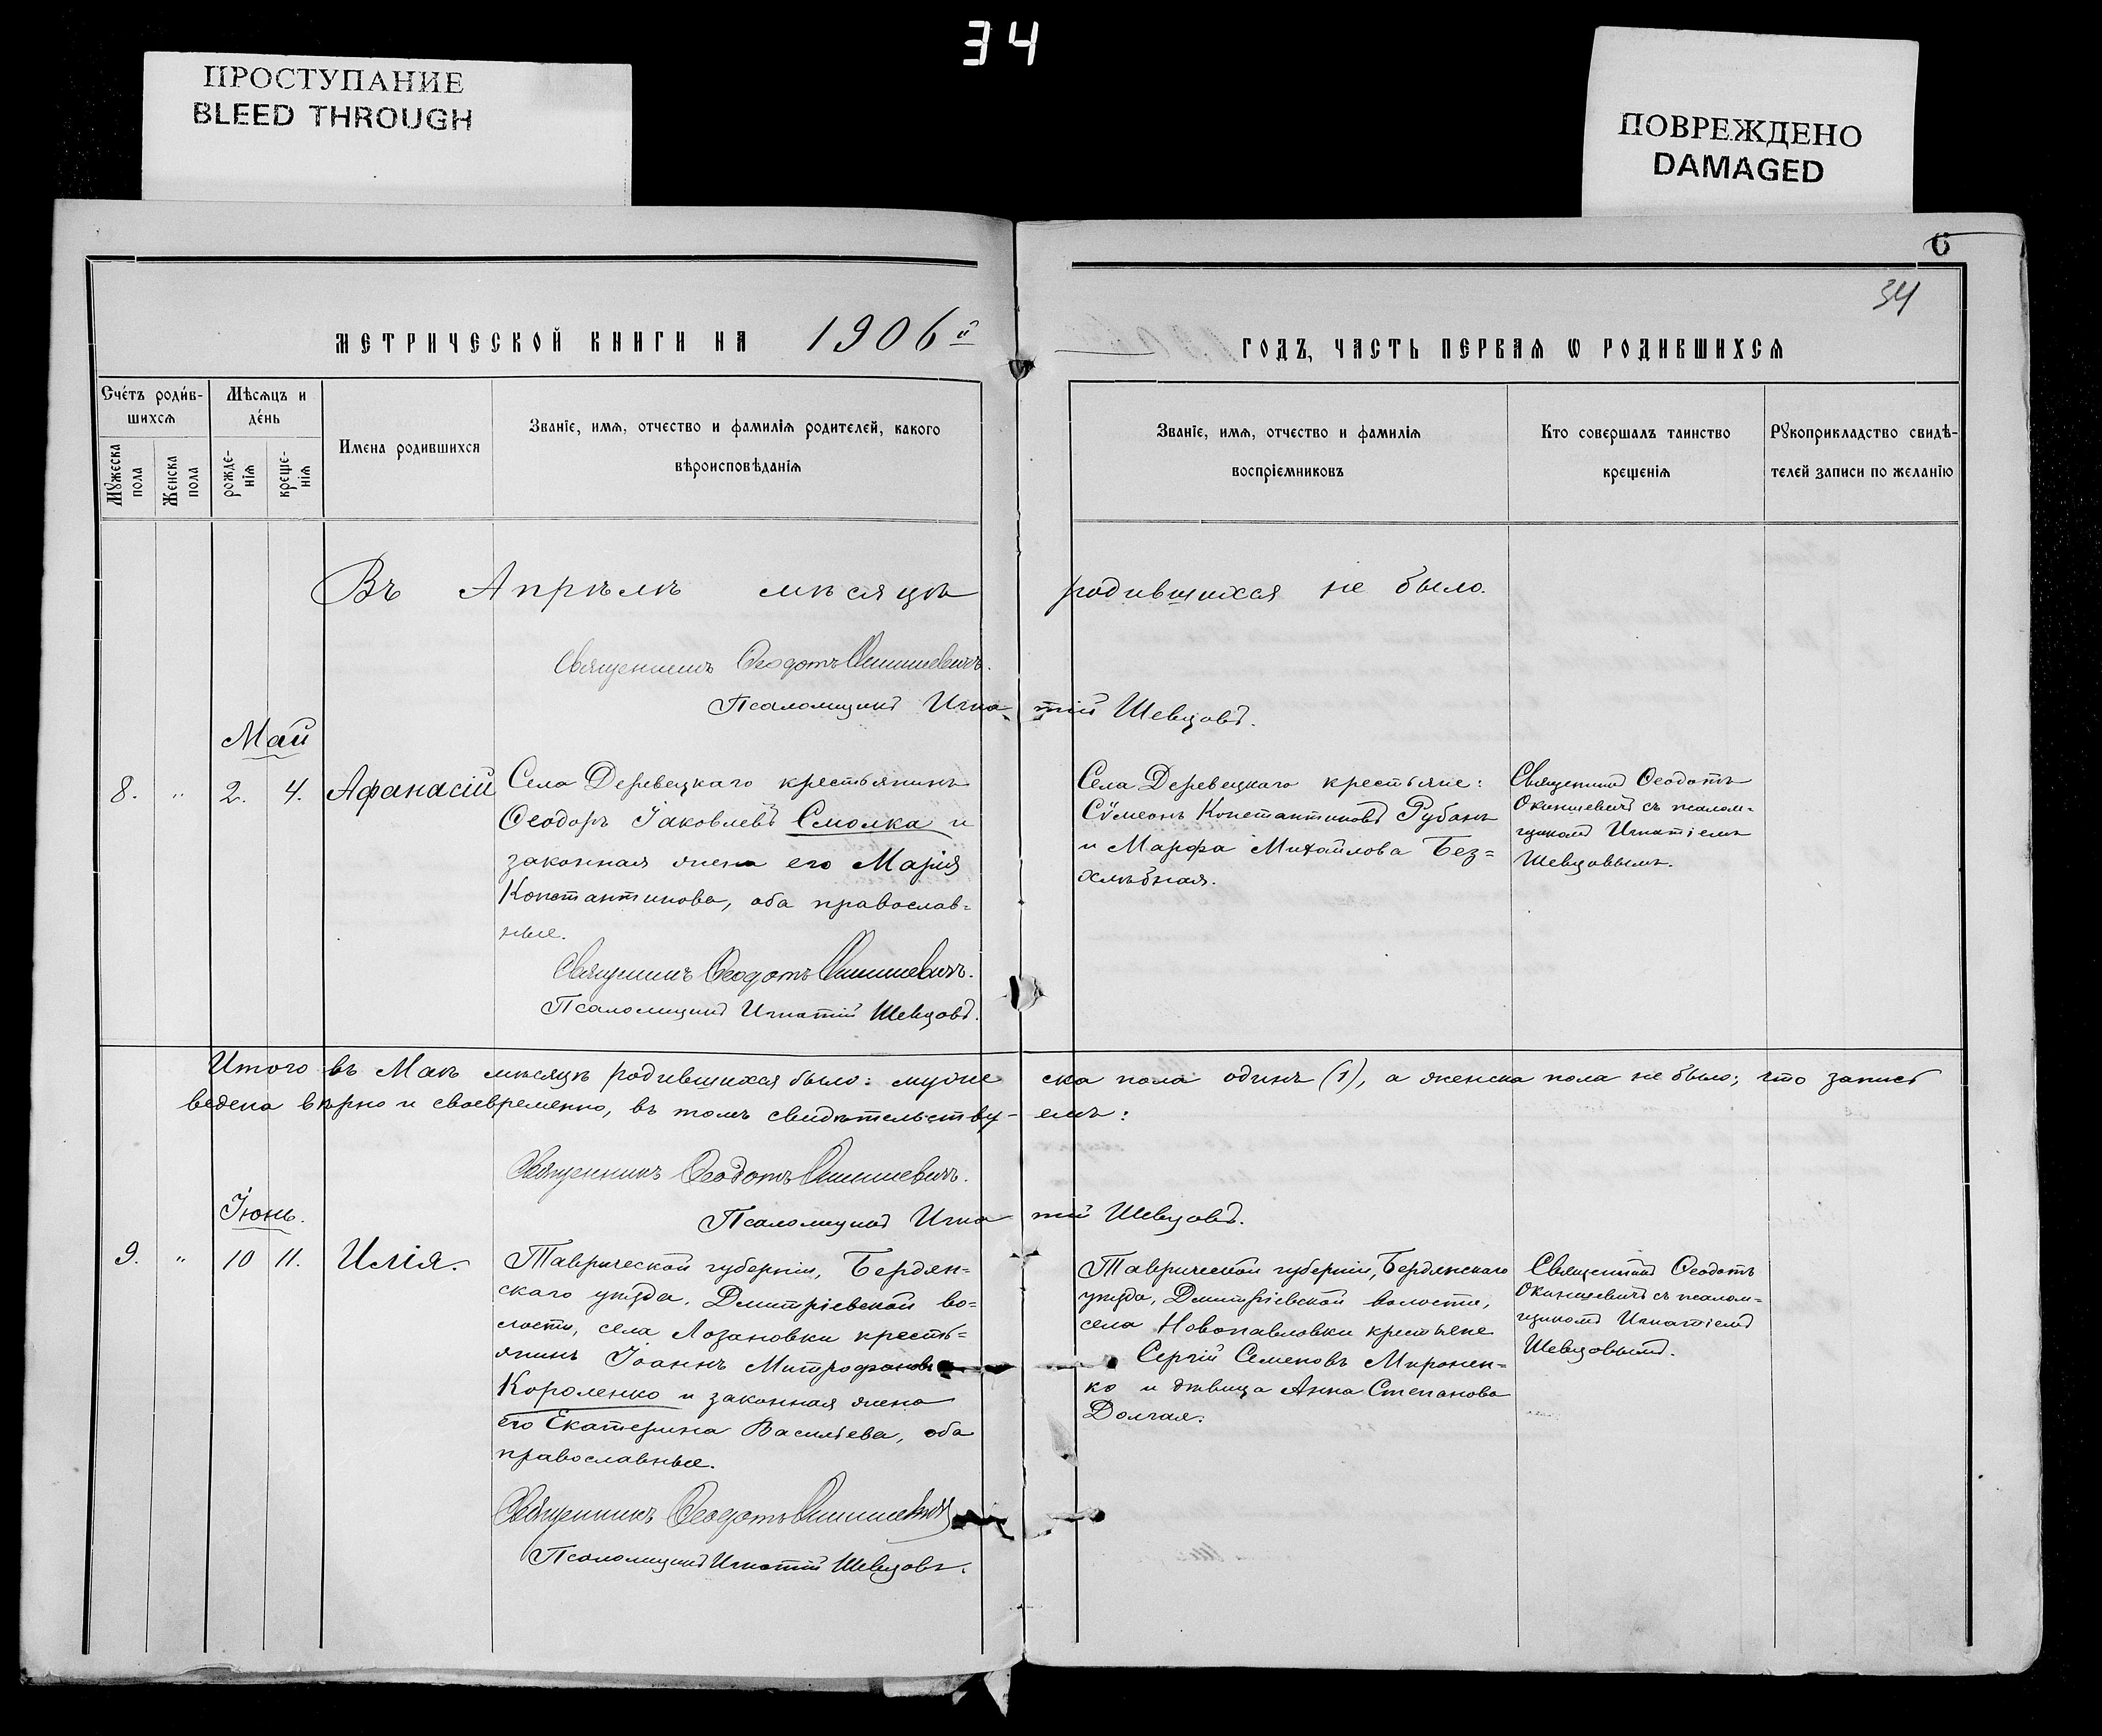 34
ПРОСТУПАНИЕ
BLEED THROUGH
ПОВРЕЖДЕНО
DAMAGED
6
34
МЕТРИЧЕСКОЙ КНИГИ НА 1906й
ГОДЪ, ЧАСТЬ ПЕРВАѦ Ѡ РОДИВШИХСѦ
Счéтъ роди́в-
шихсѧ
Мѣсѧцъ и
дéнь
Мꙋжеска
пола
Женска
пола
рожде-
нїѧ
креще-
нїѧ
Имена родившихся
Званїе, имѧ, отчество и фамилїѧ родителей, какого
вѣроисповѣданїѧ
Званїе, имѧ, отчество и фамилїѧ
воспрїемниковъ
Кто совершалъ таинство
крещенїѧ
Рꙋкоприкладство свидѣ-
телей записи по желанїю
Въ Апрѣлѣ мѣсяцѣ родившихся не было.
Священникъ Ѳеодотъ Окиншевичъ.
Псаломщикъ Игнатій Шевцовъ.
Май
8. " 2. 4. Афанасій
Села Деревецкаго крестьянинъ
Ѳеодоръ Іаковлевъ Смолка и
законная жена его Марія
Константинова, оба православ=
ные.
Священникъ Ѳеодотъ Окиншевичъ.
Псаломщикъ Игнатій Шевцовъ.
Села Деревецкаго крестьяне:
Сѵмеонъ Константиновъ Рубанъ
и Марфа Михайлова Без=
хлѣбная.
Священникъ Ѳеодотъ
Окиншевичъ съ псалом=
щикомъ Игнатіемъ
Шевцовымъ.
Итого въ Маѣ мѣсяцѣ родившихся было: мужеска пола одинъ (1), а женска пола не было; что запись
ведена вѣрно и своевременно, въ томъ свидѣтельству-емъ:
Священникъ Ѳеодотъ Окиншевичъ.
Псаломщикъ Игнатій Шевцовъ.
Іюнь.
9. " 10 11. Илія.
Таврической губерніи, Бердян=
скаго уѣзда, Дмитріевской во=
лости, села Лозановки кресть=
янинъ Іоаннъ Митрофановъ
Короленко и законная жена
его Екатерина Васильева, оба
православные.
Священникъ Ѳеодотъ Окиншевичъ
Псаломщикъ Игнатій Шевцовъ.
Таврической губерніи, Бердянскаго
уѣзда, Дмитріевской волости,
села Новопавловки крестьяне
Сергій Семеновъ Миронен=
ко и дѣвица Анна Степанова
Долгая.
Священникъ Ѳеодотъ
Окиншевичъ съ псалом=
щикомъ Игнатіемъ
Шевцовымъ.